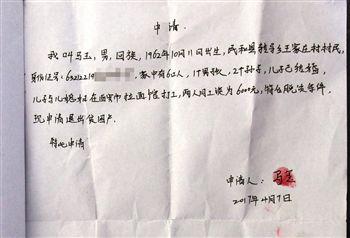 申请
我叫马玉，男，回族，1962年10月11日出生，民和县转导乡王家庄村村民，
身份证号：6321221
家中有6口人，1个男孩，2个孙子，儿子已结婚，
儿子与儿媳妇在西安市拉面馆打工，两人月工资为6000元，符合脱贫条件，
现申请退出贫困户。
特此申请
申请人：马玉
2017年4月7日